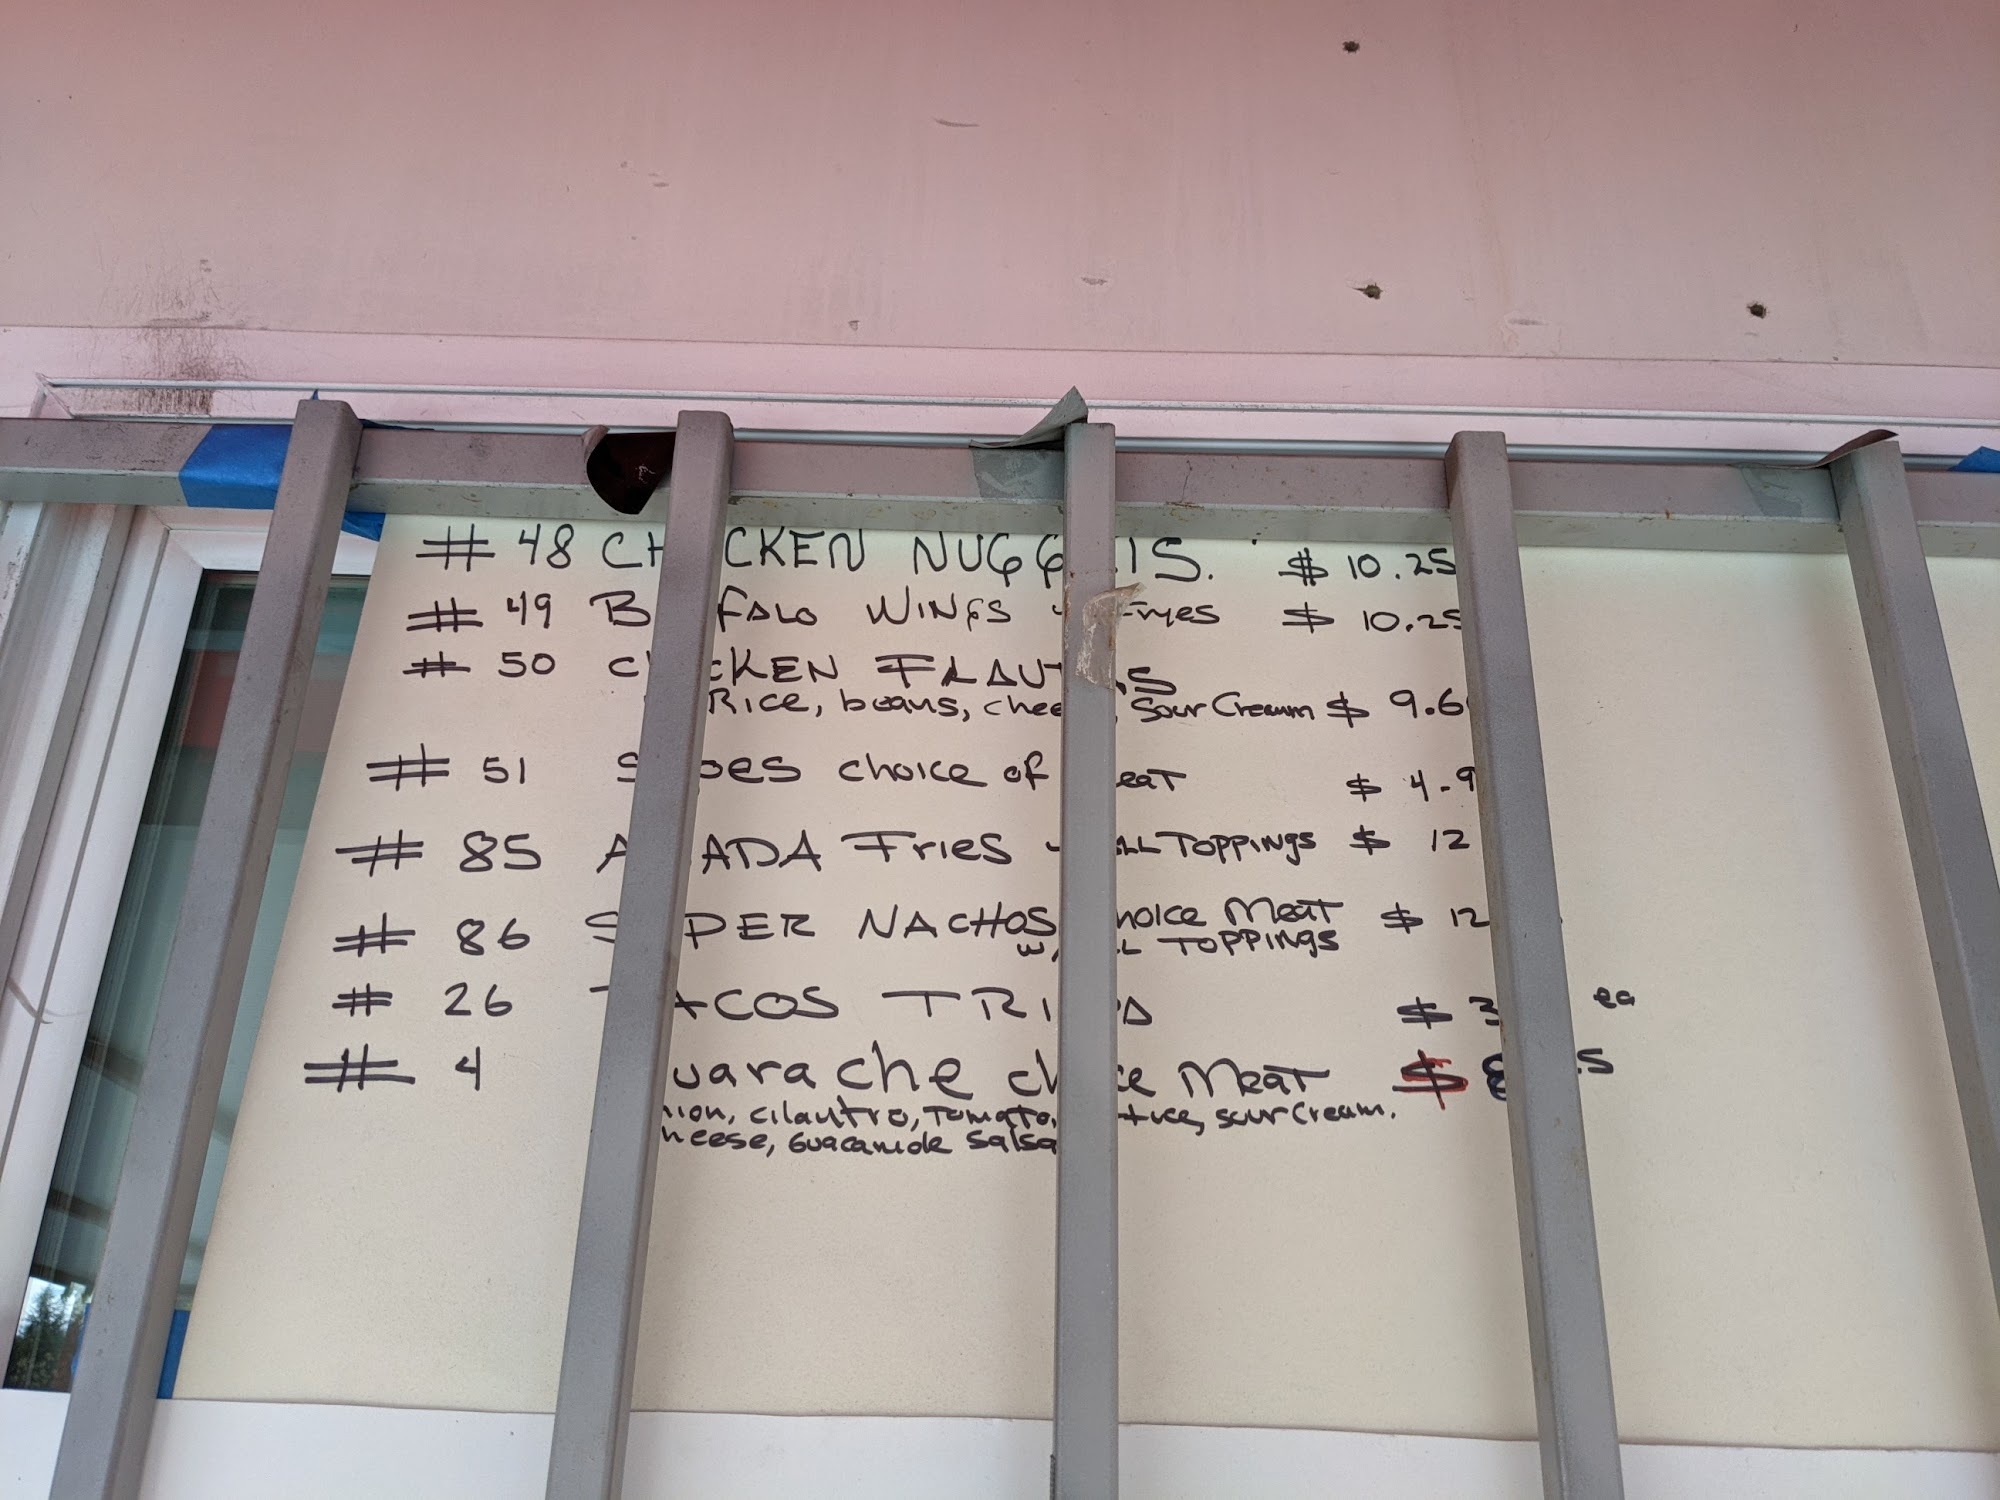 # 48 CHICKEN NUGGETS. $ 10.25
# 49 BUFFALO WINGS Fryes $ 10.25
# 50 CHICKEN FLAUTAS
Rice, beans, cheese, Sour Cream $ 9.6
# 51 Sopes choice of meat $ 4.9
# 85 ASADA Fries ALL TOPPINGS $ 12
# 86 SUPER NACHOS choice Meat $ 12
w/ ALL TOPPINGS
# 26 TACOS TRIPA $ 3 ea
# 4 Huarache choice Meat $ 8
onion, cilantro, Tomato, lettuce, sour Cream.
cheese, Guacamole Salsa